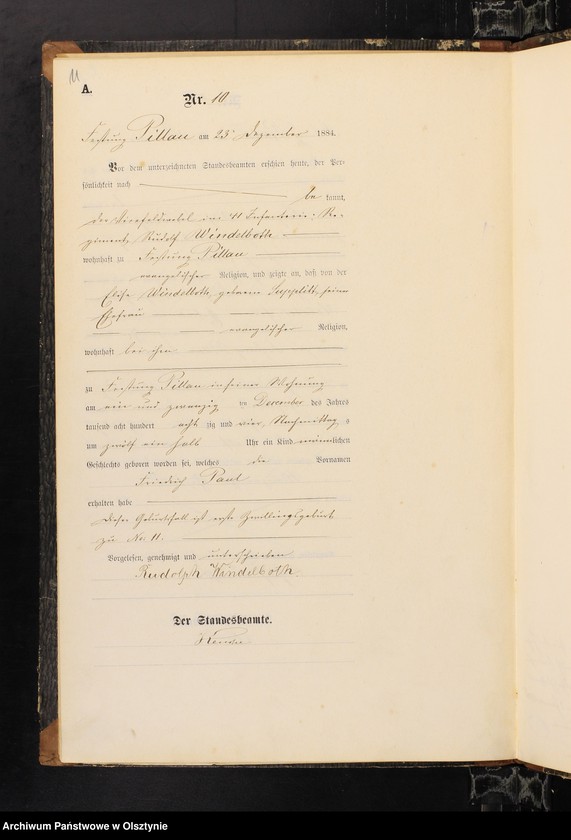 11
A.
Nr. 10.
Festung Pillau am 23 Dezember 1884.
Vor dem unterzeichneten Standesbeamten erschien heute, der Per-
sönlichkeit nach be kannt,
der Vizefeldwebel im 41 Infanterie-Re-
giment, Rudolf Windelboth
wohnhaft zu Festung Pillau
evangelischer Religion, und zeigte an, daß von der
Elise Windelboth, geborene seiner
Ehefrau
evangelischer Religion,
wohnhaft bei ihm
zu Festung Pillau in seiner Wohnung
am ein und zwanzig ten December des Jahres
tausend acht hundert acht zig und vier, Nachmittag s
um zwölf ein halb Uhr ein Kind männlichen
Geschlechts geboren worden sei, welches die Vornamen
Friedrich Paul
erhalten habe
Dieser Geburtsfall ist erste Zwillingsgeburt
zu No 11.
Vorgelesen, genehmigt und unterschrieben
Rudolph Windelboth.
Der Standesbeamte.
Archiwum Państwowe w Olsztynie